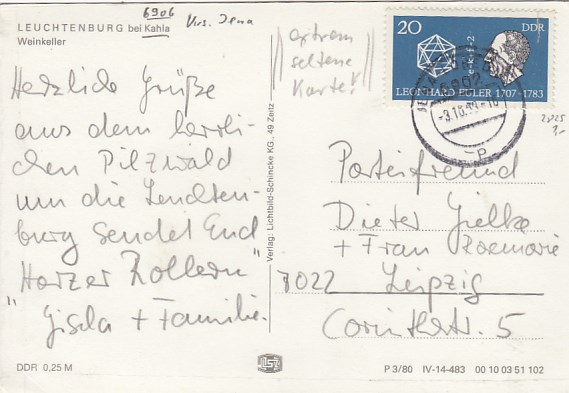 6906 Krs. Jena
LEUCHTENBURG bei Kahla
Weinkeller
extrem
seltene
Karte!
20 DDR
e-k+f=2
LEONHARD EULER 1707-1783
6902
-3.10.83-10
2025
Herzliche Grüße
aus dem herrli-
chen Pilzwald
um die Leuchten-
burg sendet Euch
Harzer Rollern"
"Gisela + Familie.
Verlag: Lichtbild-Schincke KG., 49 Zeitz
Parteifreund
Dieter Gielke
+ Frau Rosemarie
7022 Leipzig
Corinthstr. 5
DDR 0,25 M
P 3/80 IV-14-483 00 10 03 51 102